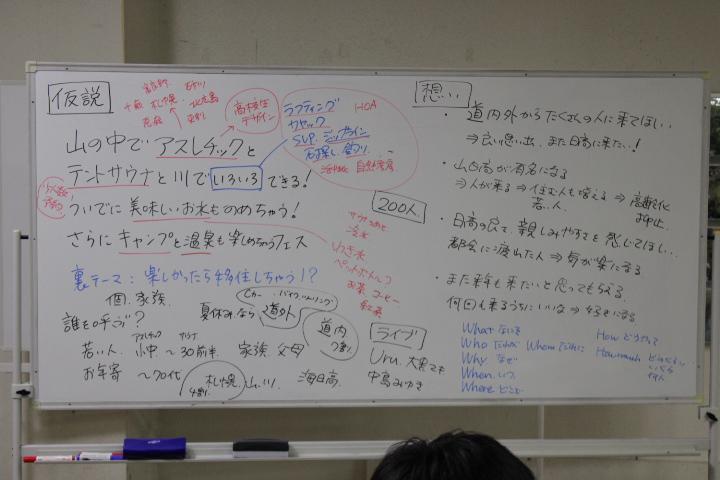 仮説
札幌
高校生
デザイン
山の中で アスレチックと
テントサウナと川でいろいろできる!
ついでに美味しいお水ものめちゃう!
さらにキャンプと温泉も楽しめちゃうフェス
裏テーマ:楽しかったら移住しちゃう!?
個、家族
誰を呼ぶ?
夏休みなら 道外
道内
アスレチック サウナ
若い人 小中 ~30前半 家族 父母
お年寄 ~70代
札幌 山、川、海日高、
ラフティング HOA
カヤック
SUP ジップライン
石探し 釣り
200人
わき水
ペットボトル
お茶 コーヒー
紅茶
ライブ
Uru、大黒摩季
中島みゆき
想い
・道内外からたくさんの人に来てほしい…
⇒良い思い出、また日高に来たい!
・山日高が有名になる
⇒人が来る⇒住む人も増える⇒高齢化
若い人
お中止
・日高の良さ、親しみやすさを感じてほしい…
都会に疲れた人⇒気が楽になる
・また来年も来たいと思ってもらえる
何回も来るうちにいいな⇒好きになる
What なにを
Who だれが Whom だれに
Why なぜ
When いつ
Where どこで
How どうやって
How much どれくらい
いくら
何人